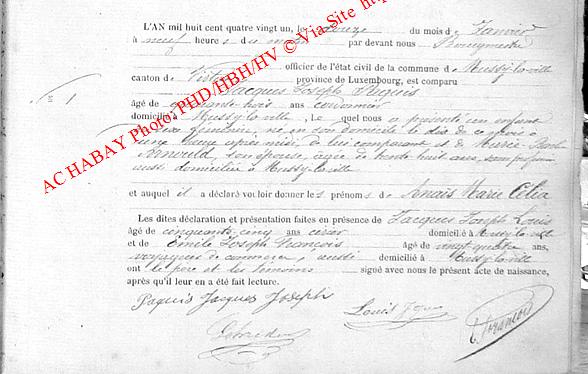 L'AN mil huit cent quatre vingt un, le douze du mois de Janvier
à neuf heures du matin par devant nous Bourgmestre
officier de l'état civil de la commune de Mussy-la-ville
canton de Virton province de Luxembourg, est comparu
Jacques Joseph Paquis
âgé de quarante huit ans cordonnier
domicilié à Mussy-la-ville, Le quel nous a présenté un enfant
du sexe féminin, né en son domicile le dix de ce mois à
une heure après midi, de lui comparant et de Marie
son épouse, agée de trente huit ans, sans profession
aussi domiciliée à Mussy-la-ville
et auquel il a déclaré vouloir donner les prénoms de Anaïs Marie Célia
Les dites déclaration et présentation faites en présence de Jacques Joseph Louis
âgé de cinquante cinq ans domicilié à Mussy-la-ville
et de Emile Joseph François âgé de vingt quatre ans,
voyageur de commerce, aussi domicilié à Mussy-la-ville
ont le père et les témoins signé avec nous le présent acte de naissance,
après qu'il leur en a été fait lecture.
Paquis Jacques Joseph
Louis
E. François
1
AC HABAY Photo: PHD/HBH/HV © Via Site